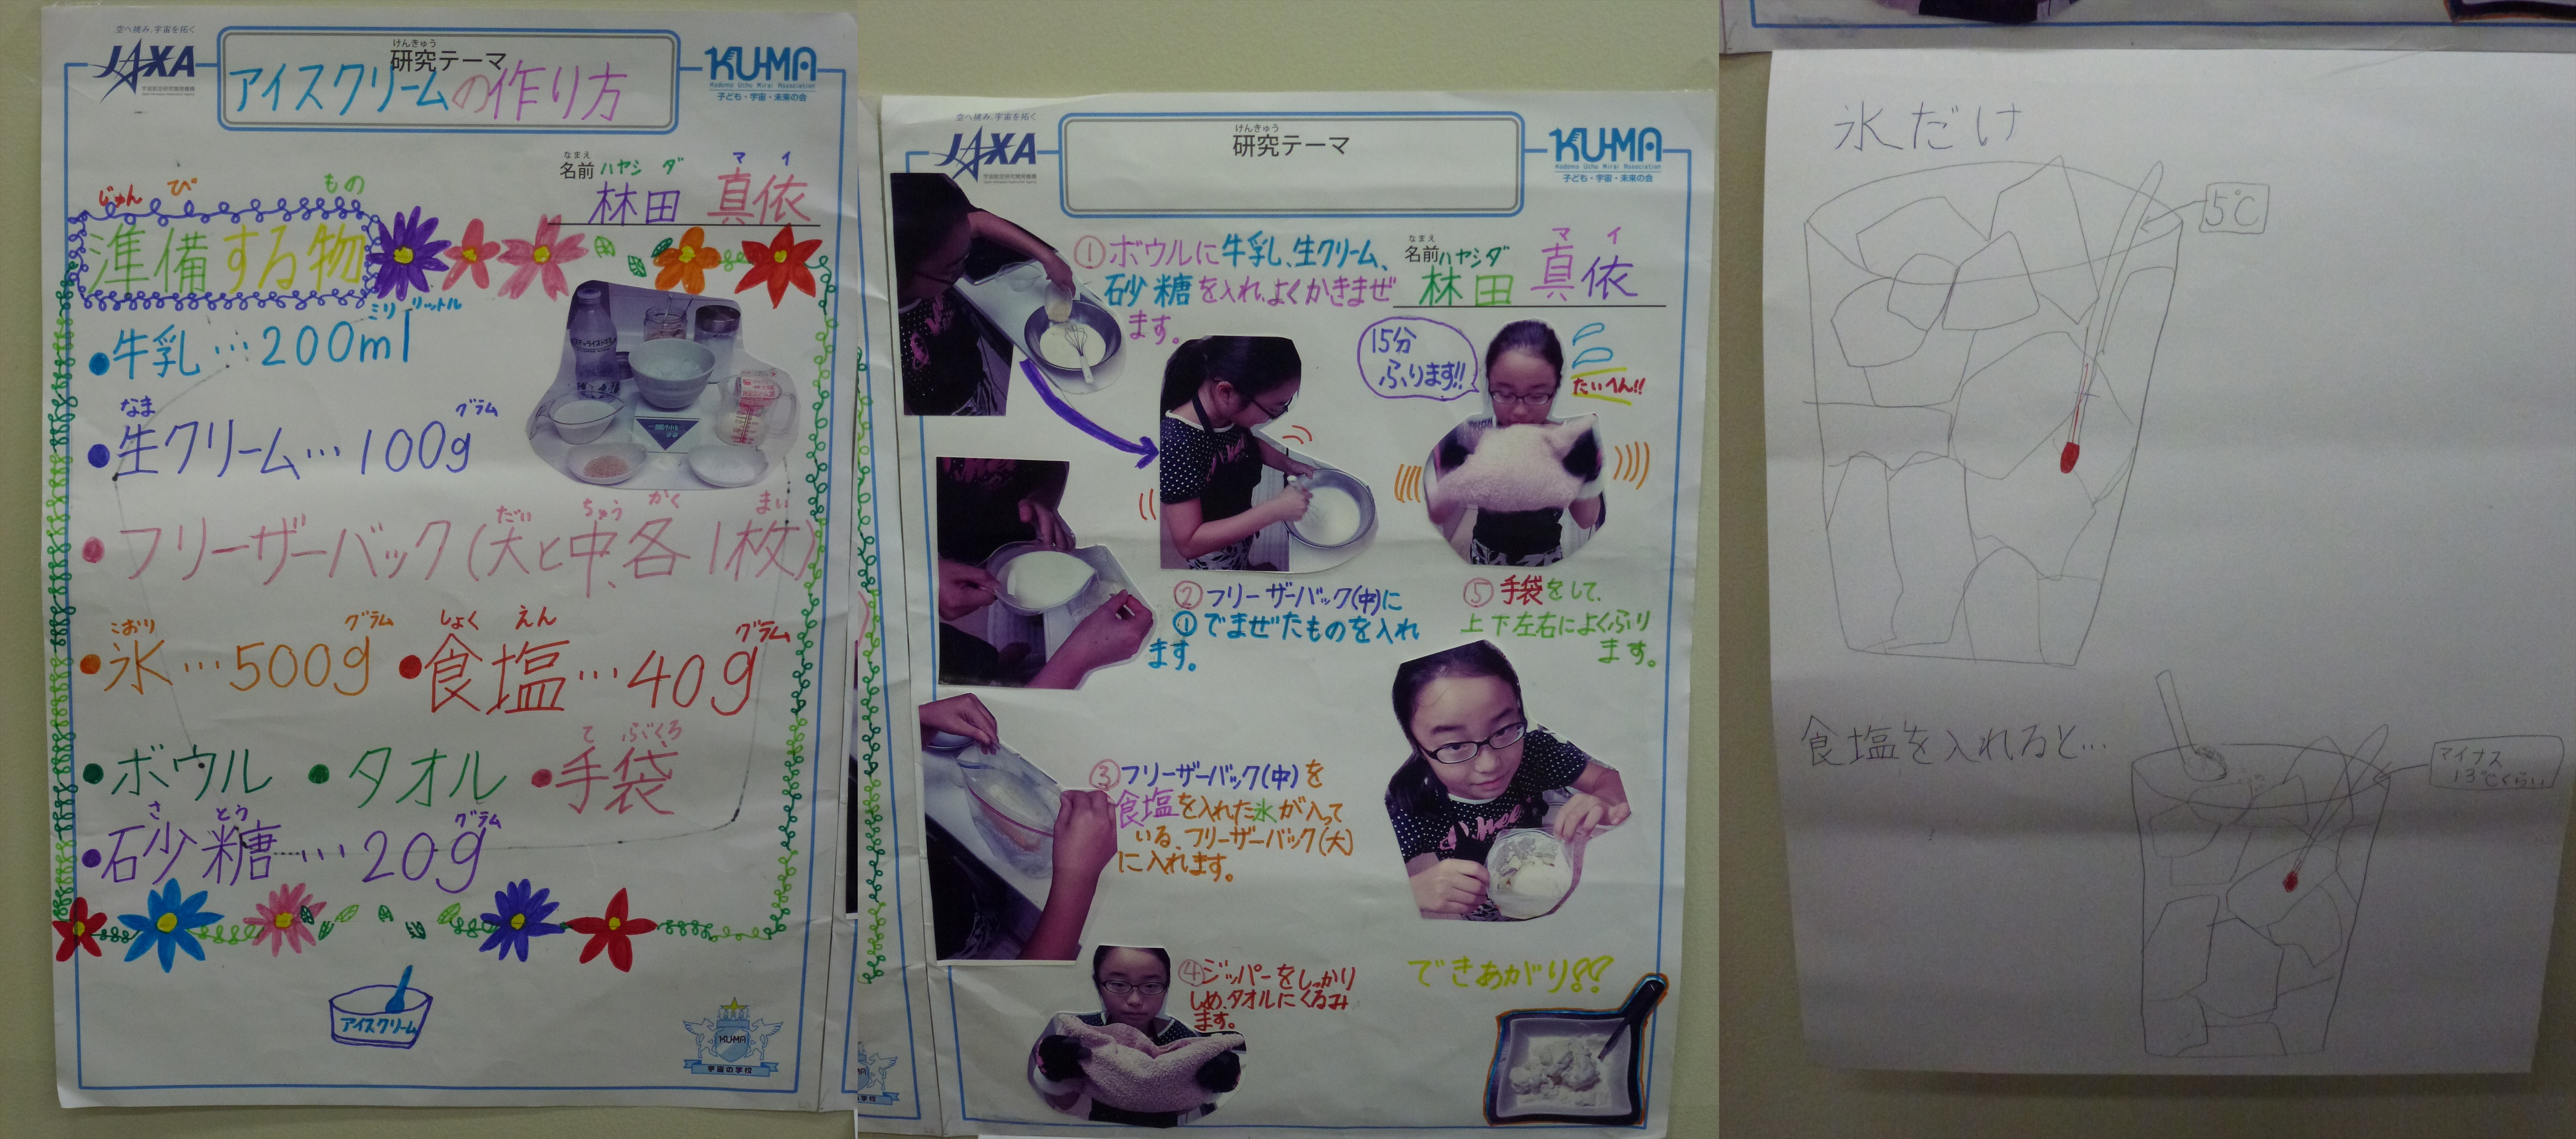 空へ挑み、宇宙を拓く
JAXA
けんきゅう
研究テーマ
アイスクリームの作り方
KU-MA
Kodomo Uchu Mirai Association
子ども・宇宙・未来の会
なまえ
名前
ハヤシ ダ マ イ
林田 真依
じゅん び もの
準備する物
ミリ リットル
•牛乳…200ml
なま グラム
•生クリーム…100g
だい ちゅう かく まい
•フリーザーバック(大と中、各1枚)
こおり グラム しょく えん グラム
•氷…500g •食塩…40g
て ぶくろ
•ボウル •タオル •手袋
さ とう グラム
•砂糖…20g
アイスクリーム
KU-MA
宇宙の学校
空へ挑み、宇宙を拓く
JAXA
けんきゅう
研究テーマ
KU-MA
Kodomo Uchu Mirai Association
子ども・宇宙・未来の会
なまえ
名前
ハヤシダ マ イ
林田 真依
①ボウルに牛乳、生クリーム、
砂糖を入れ、よくかきまぜ
ます。
15分
ふります!!
たいへん!!
②フリーザーバック(中)に
①でまぜたものを入れ
ます。
⑤手袋をして、
上下左右によくふり
ます。
③フリーザーバック(中)を
食塩を入れた氷が入って
いる、フリーザーバック(大)
に入れます。
④ジッパーをしっかり
しめ、タオルにくるみ
ます。
できあがり!!
氷だけ
5℃
食塩を入れると…
マイナス
13℃くらい